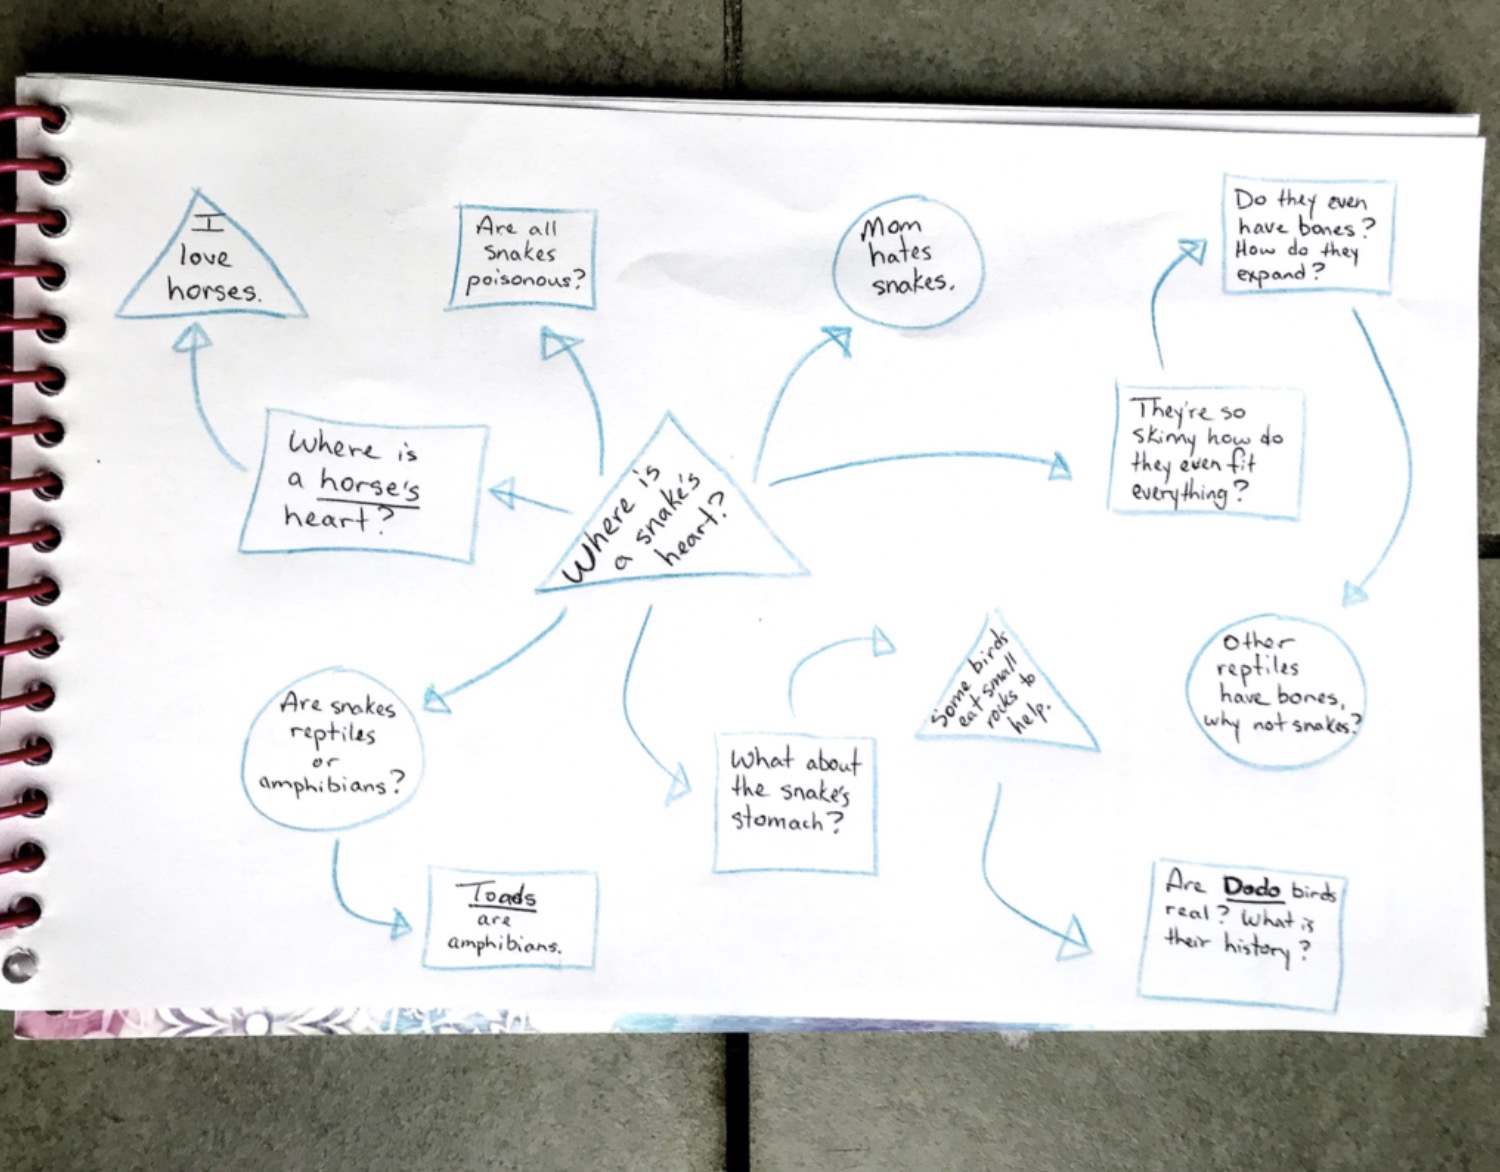 I
love
horses.
Are all
snakes
poisonous?
Mom
hates
snakes.
Do they even
have bones?
How do they
expand?
Where is
a horse's
heart?
Where is
a snake's
heart?
They're so
skinny how do
they even fit
everything?
Are snakes
reptiles
or
amphibians?
Toads
are
amphibians.
What about
the snake's
stomach?
Some birds
eat small
rocks to
help.
Other
reptiles
have bones,
why not snakes?
Are Dodo birds
real? What is
their history?